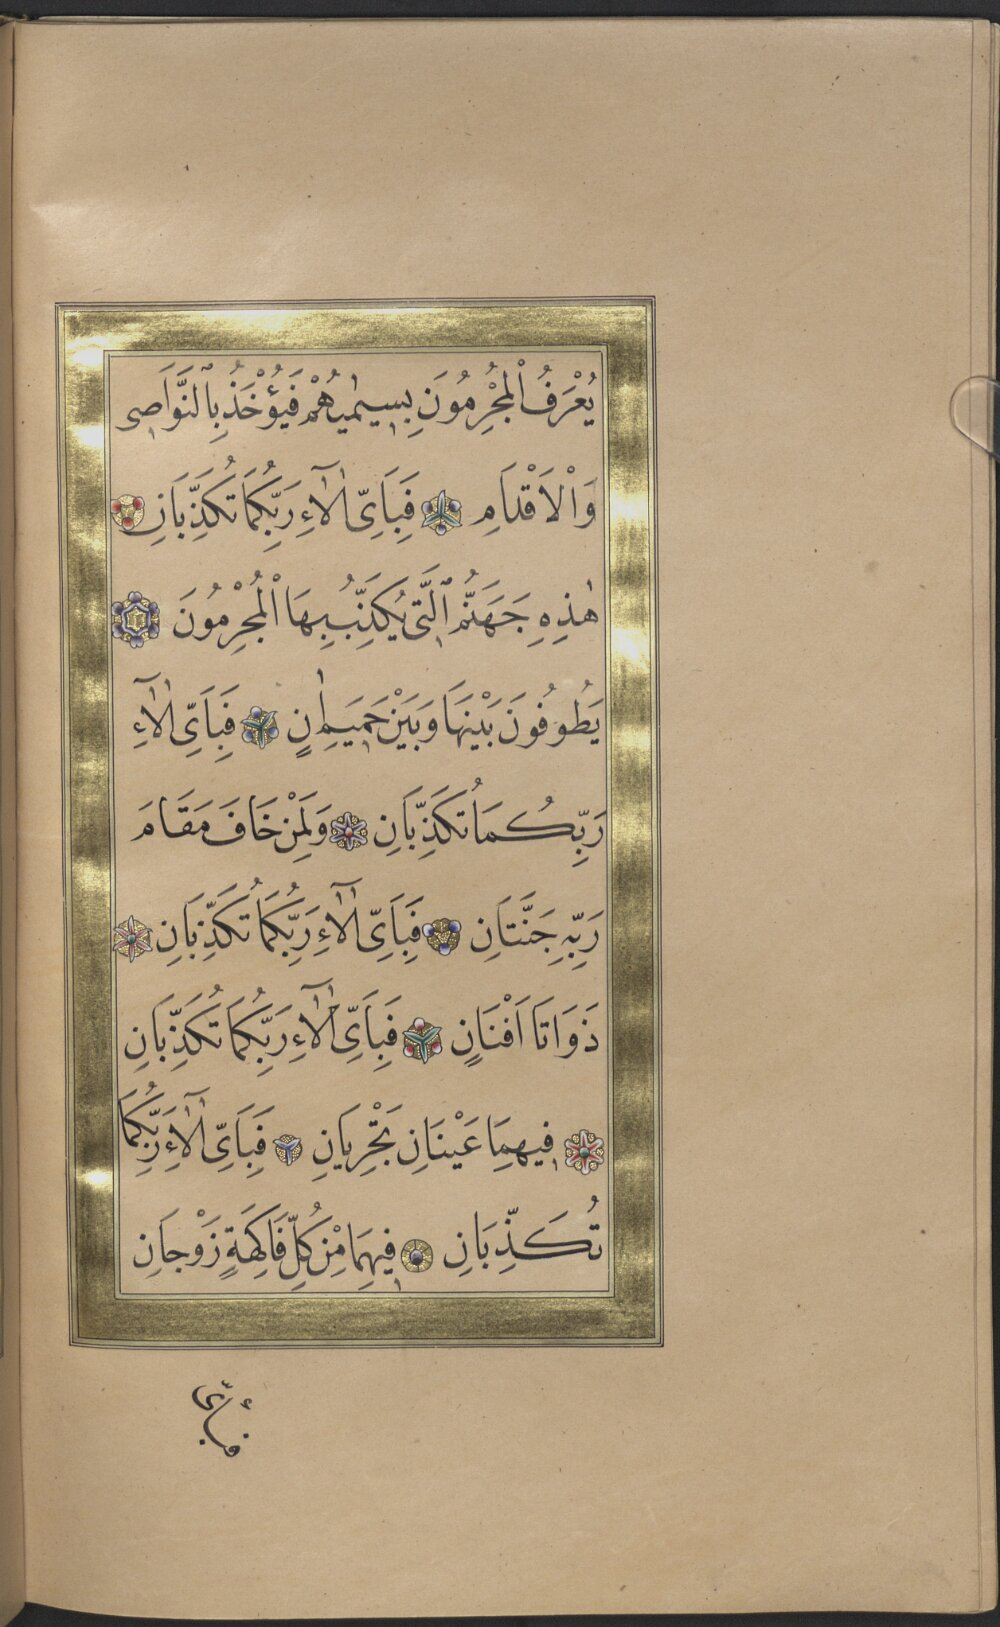 يُعْرَفُ الْمُجْرِمُونَ بِسِيمٰيهُمْ فَيُؤْخَذُ بِالنَّوَاصِى
وَالْاَقْدَامِ فَبِاَىِّ اٰلَٓاءِ رَبِّكُمَا تُكَذِّبَانِ
هٰذِهِ جَهَنَّمُ الَّتِى يُكَذِّبُ بِهَا الْمُجْرِمُونَ
يَطُوفُونَ بَيْنَهَا وَبَيْنَ حَمِيمٍ اٰنٍ فَبِاَىِّ اٰلَٓاءِ
رَبِّكُمَا تُكَذِّبَانِ وَلِمَنْ خَافَ مَقَامَ
رَبِّهِ جَنَّتَانِ فَبِاَىِّ اٰلَٓاءِ رَبِّكُمَا تُكَذِّبَانِ
ذَوَاتَا اَفْنَانٍ فَبِاَىِّ اٰلَٓاءِ رَبِّكُمَا تُكَذِّبَانِ
فِيهِمَا عَيْنَانِ تَجْرِيَانِ فَبِاَىِّ اٰلَٓاءِ رَبِّكُمَا
تُكَذِّبَانِ فِيهِمَا مِنْ كُلِّ فَاكِهَةٍ زَوْجَانِ
فبأى